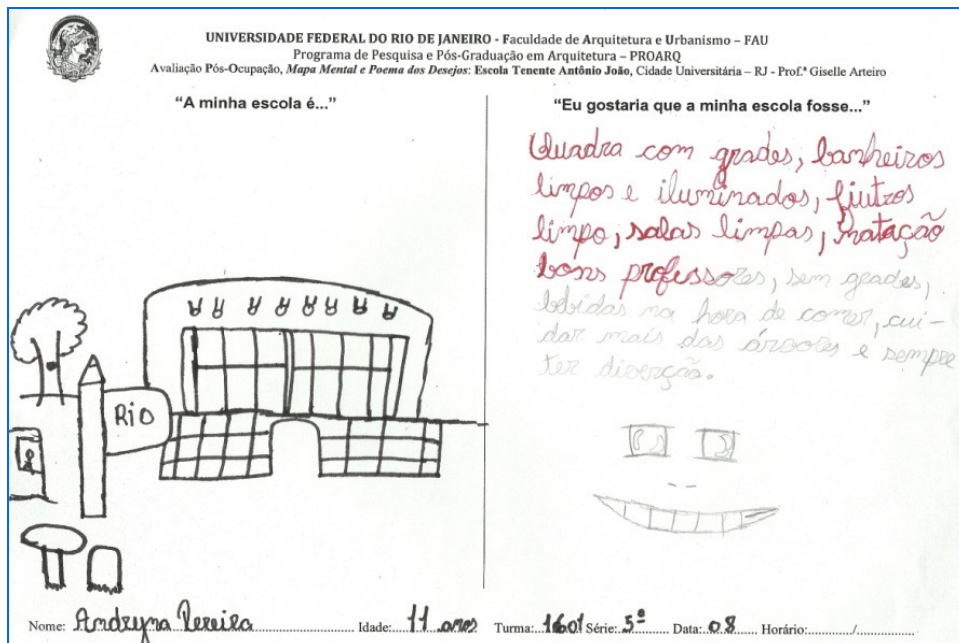 UNIVERSIDADE FEDERAL DO RIO DE JANEIRO - Faculdade de Arquitetura e Urbanismo – FAU
Programa de Pesquisa e Pós-Graduação em Arquitetura – PROARQ
Avaliação Pós-Ocupação, Mapa Mental e Poema dos Desejos: Escola Tenente Antônio João, Cidade Universitária – RJ - Prof.ª Giselle Arteiro
"A minha escola é..."
RIO
"Eu gostaria que a minha escola fosse..."
Quadra com grades, banheiros
limpos e iluminados, fiutros
limpo, salas limpas, natação
bons professores, sem grades,
bebidas na hora de comer, cui-
dar mais das árvores e sempre
ter diverção.
Nome: Andryna Pereira Idade: 11 anos Turma: 1601 Série: 5ª Data: 08 Horário:............/............